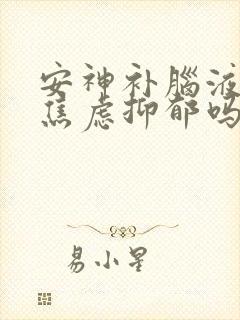 安神补腦液
焦虑抑郁吗
易小星